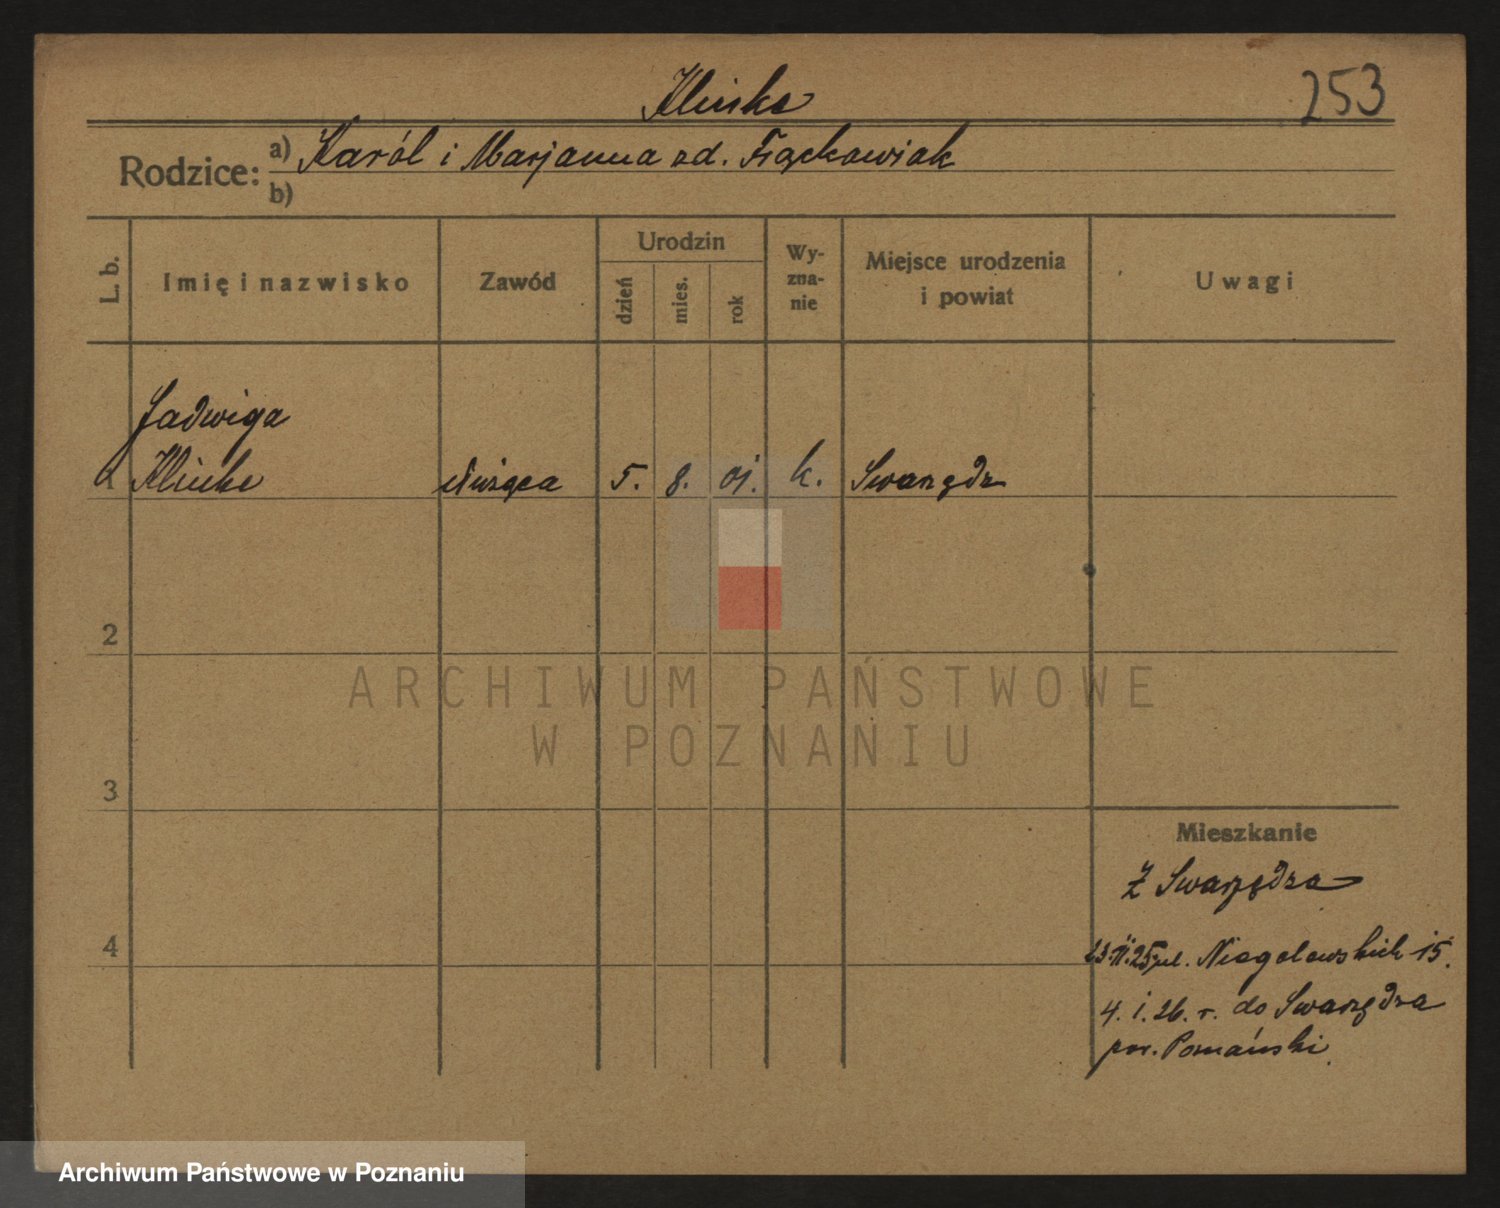 Klinke
253
Rodzice:
a) Karól i Marjanna zd. Frąckowiak
b)
L. b.
Imię i nazwisko
Zawód
Urodzin
dzień
mies.
rok
Wy-
zna-
nie
Miejsce urodzenia
i powiat
Uwagi
Jadwiga
1 Klinke służąca 5. 8. 01. k. Swarzędz
2
3
4
Mieszkanie
Z Swarzędza
25 ul. Niegolewskich 15.
4. i. 26. r. do Swarzędza
pow. Poznański
ARCHIWUM PAŃSTWOWE
W POZNANIU
Archiwum Państwowe w Poznaniu